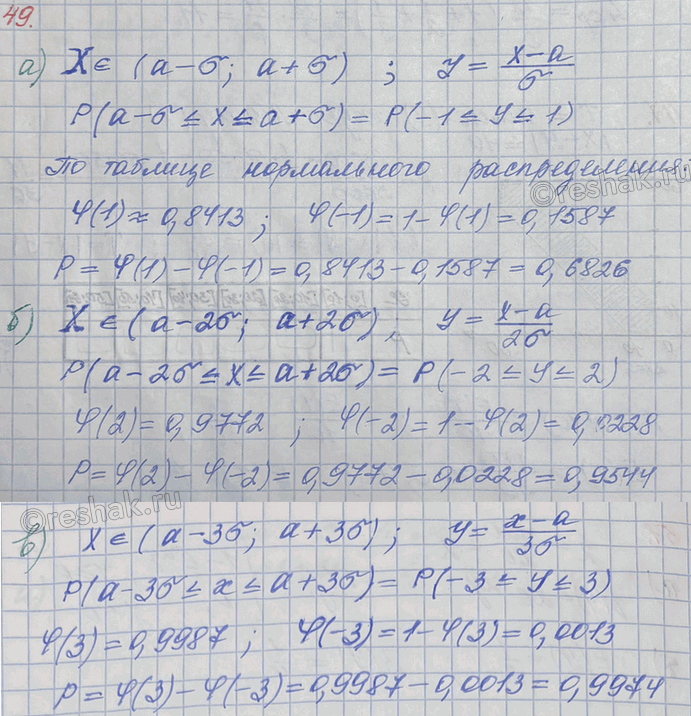 49.
а) X ∈ (a-σ; a+σ) ; y = (x-a)/σ
P(a-σ ≤ x ≤ a+σ) = P(-1 ≤ y ≤ 1)
По таблице нормального распределения:
φ(1) ≈ 0,8413 ; φ(-1) = 1-φ(1) = 0,1587
P = φ(1) - φ(-1) = 0,8413 - 0,1587 = 0,6826
б) X ∈ (a-2σ; a+2σ), y = (x-a)/2σ
P(a-2σ ≤ x ≤ a+2σ) = P(-2 ≤ y ≤ 2)
φ(2) = 0,9772 ; φ(-2) = 1-φ(2) = 0,0228
P = φ(2) - φ(-2) = 0,9772 - 0,0228 = 0,9544
в) X ∈ (a-3σ; a+3σ) ; y = (x-a)/3σ
P(a-3σ ≤ x ≤ a+3σ) = P(-3 ≤ y ≤ 3)
φ(3) = 0,9987 ; φ(-3) = 1-φ(3) = 0,0013
P = φ(3) - φ(-3) = 0,9987 - 0,0013 = 0,9974
©reshak.ru
©reshak.ru